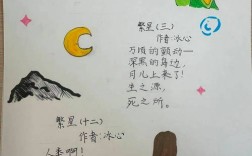 繁星(三)
作者:冰心
万顷的颤动一
深黑的岛边,
月儿上来了!
生之源,
死之所。
繁星(十二)
作者:冰心
人类啊!